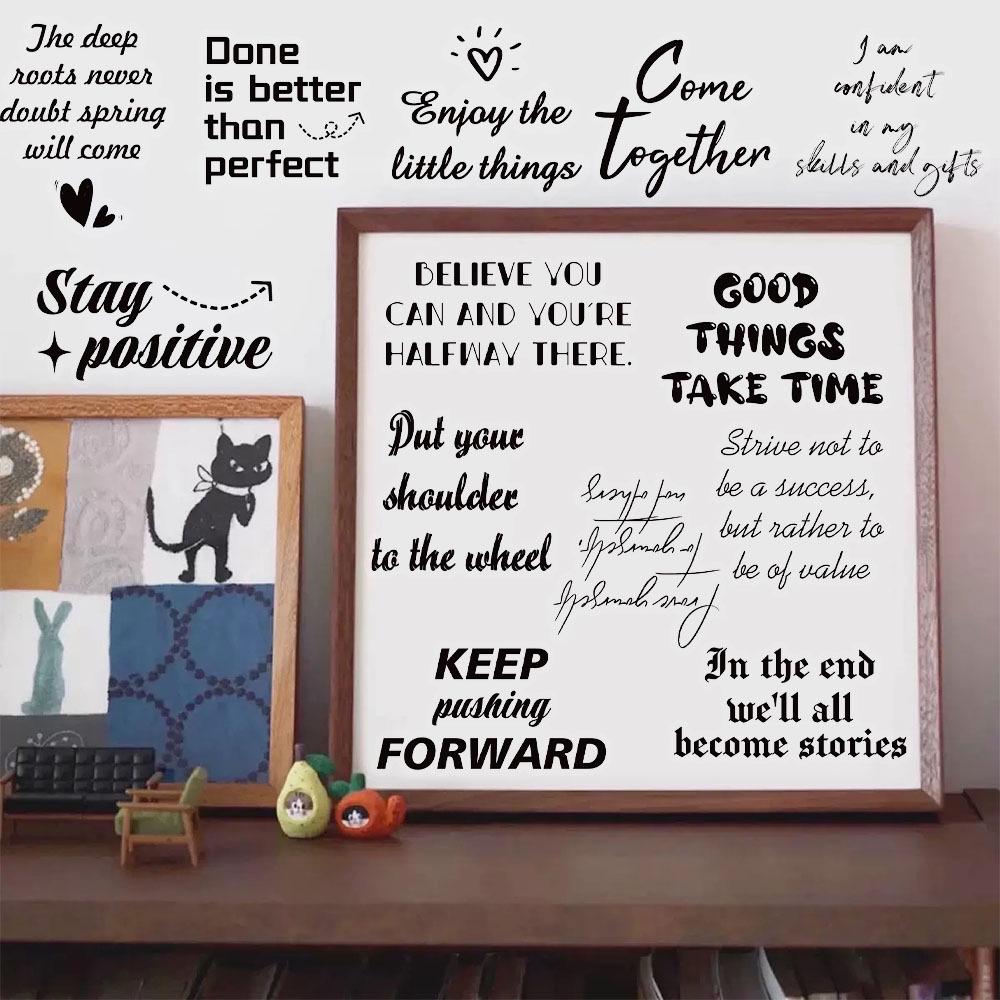 The deep
roots never
doubt spring
will come
Done
is better
than
perfect
Enjoy the
little things
Come
together
I am
confident
in my
skills and gifts
Stay
positive
BELIEVE YOU
CAN AND YOU'RE
HALFWAY THERE.
GOOD
THINGS
TAKE TIME
Put your
shoulder
to the wheel
Prove yourself
to yourself,
not others
Strive not to
be a success,
but rather to
be of value
KEEP
pushing
FORWARD
In the end
we'll all
become stories